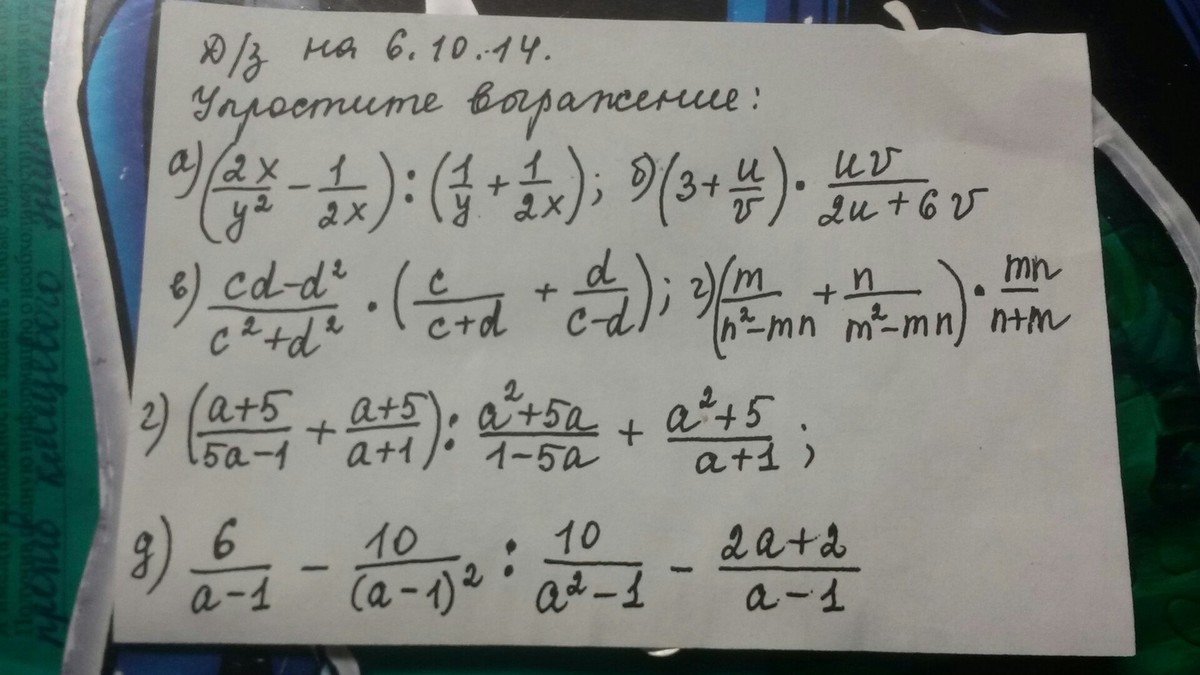 Д/з на 6.10.14.
Упростите выражение:
а) (2x/y² - 1/2x) : (1/y + 1/2x); б) (3 + u/v) · uv/2u+6v
в) cd-d²/c²+d² · (c/c+d + d/c-d); г) (m/n²-mn + n/m²-mn) · mn/n+m
г) (a+5/5a-1 + a+5/a+1) : a²+5a/1-5a + a²+5/a+1;
д) 6/a-1 - 10/(a-1)² : 10/a²-1 - 2a+2/a-1